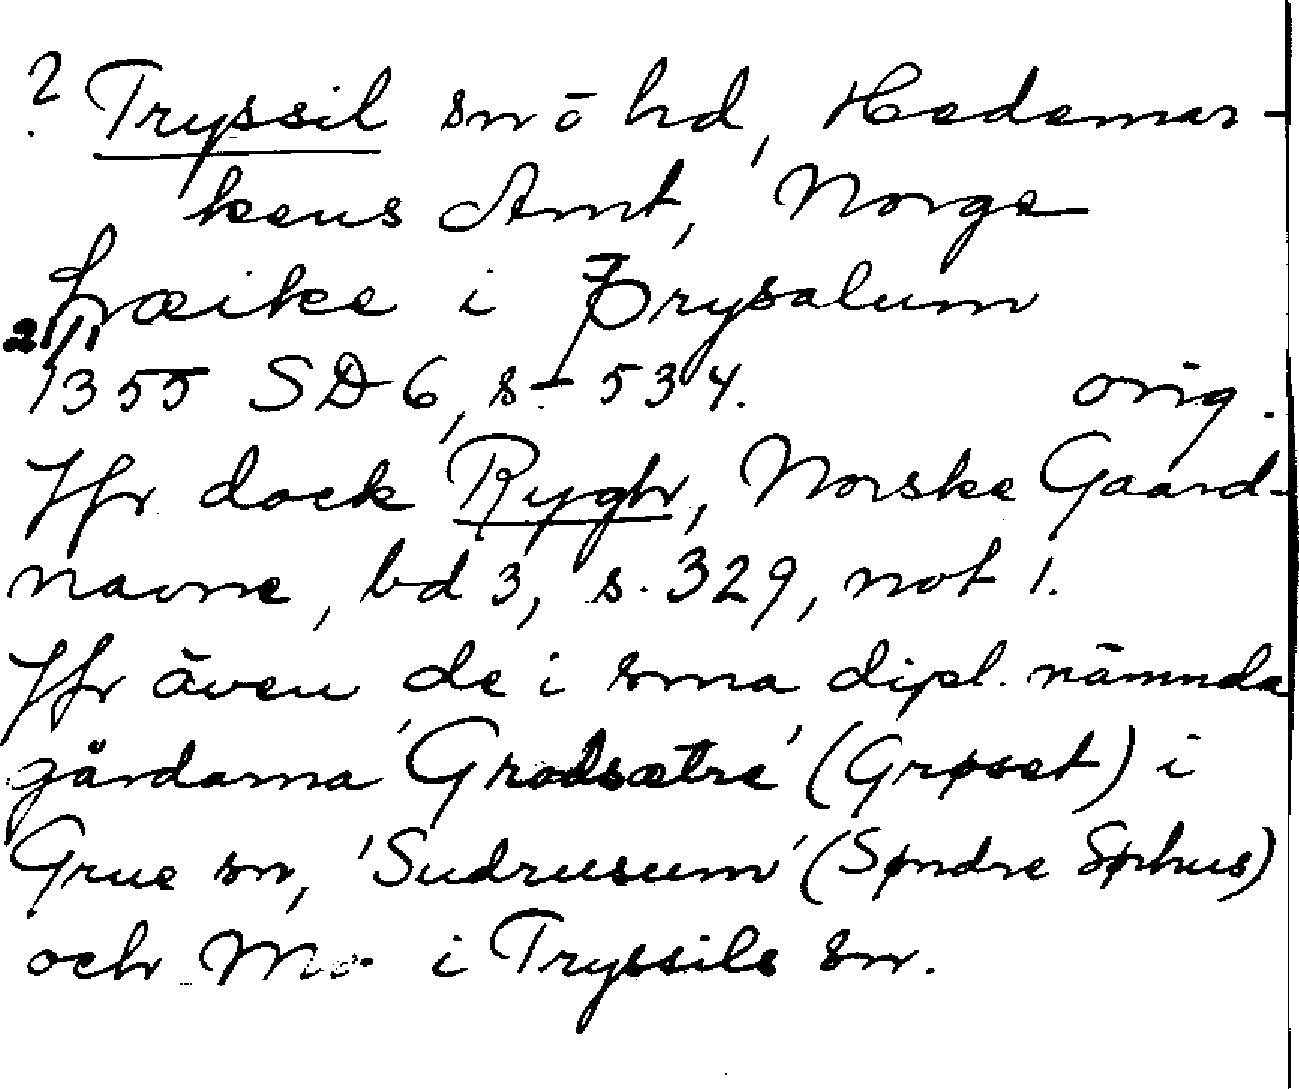 ? Tryssil sn o hd, Hedemar-
kens Amt, Norge
Læike i Þrysalum
21/1
1355 SD 6, s. 534. orig.
Jfr dock Rygh, Norske Gaard-
navne, bd 3, s. 329, not 1.
Jfr även de i sma dipl. nämnda
gårdarna 'Grodsætre' (Grøset) i
Grue sn, 'Sudrusum' (Søndre Sørhus)
och Mo i Tryssils sn.